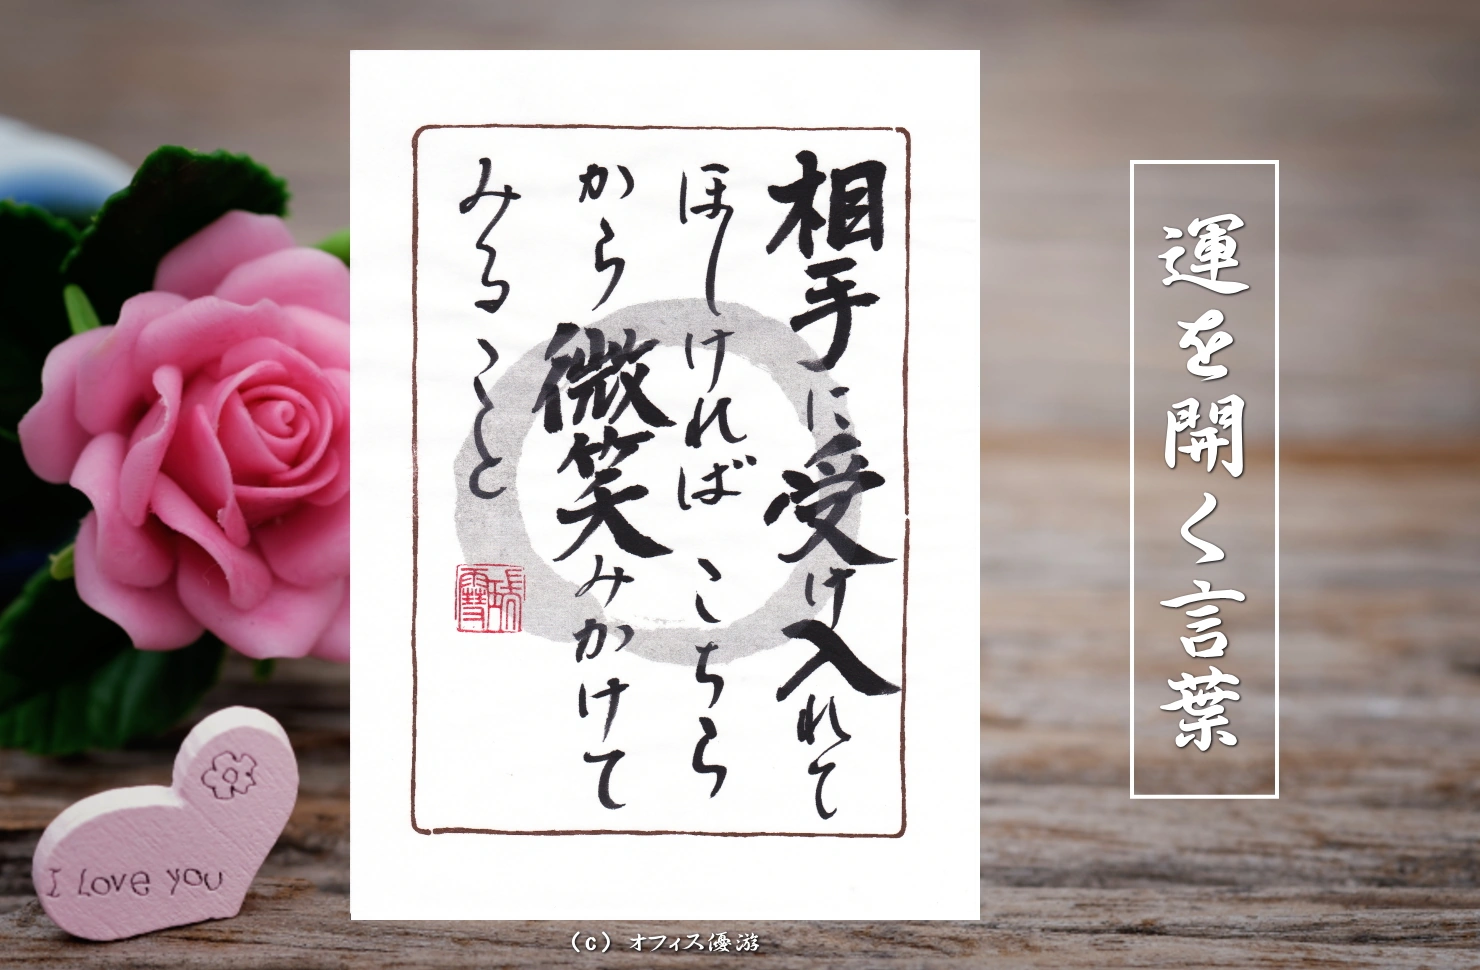 運を開く言葉
相手に受け入れて
ほしければ こちら
から微笑みかけて
みること
I Love you
(c) オフィス優游